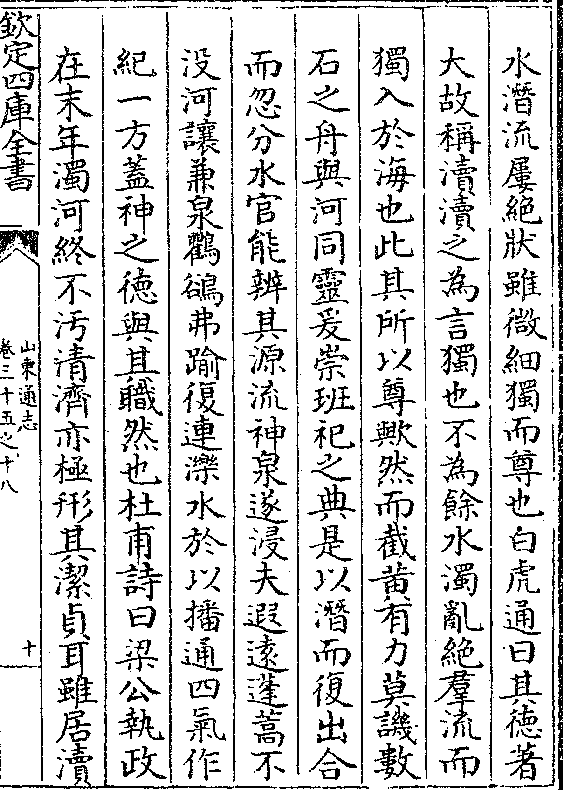 水潛流屢絶狀雖微細獨而尊也白虎通曰其徳著
大故稱瀆瀆之為言獨也不為餘水濁亂絶羣流而
獨入於海也此其所以尊歟然而截黄有力莫譏數
石之舟與河同靈爰崇班祀之典是以潛而復出合
而忽分水官能辨其源流神泉遂浸夫遐逺蓬蒿不
没河讓兼泉鸜鵒弗踰復連濼水於以播通四氣作
紀一方蓋神之徳與其職然也杜甫詩曰梁公執政
在末年濁河終不汚清濟亦極形其潔貞耳雖居瀆
欽定四庫全書
山東通志
卷三十五之十八
十